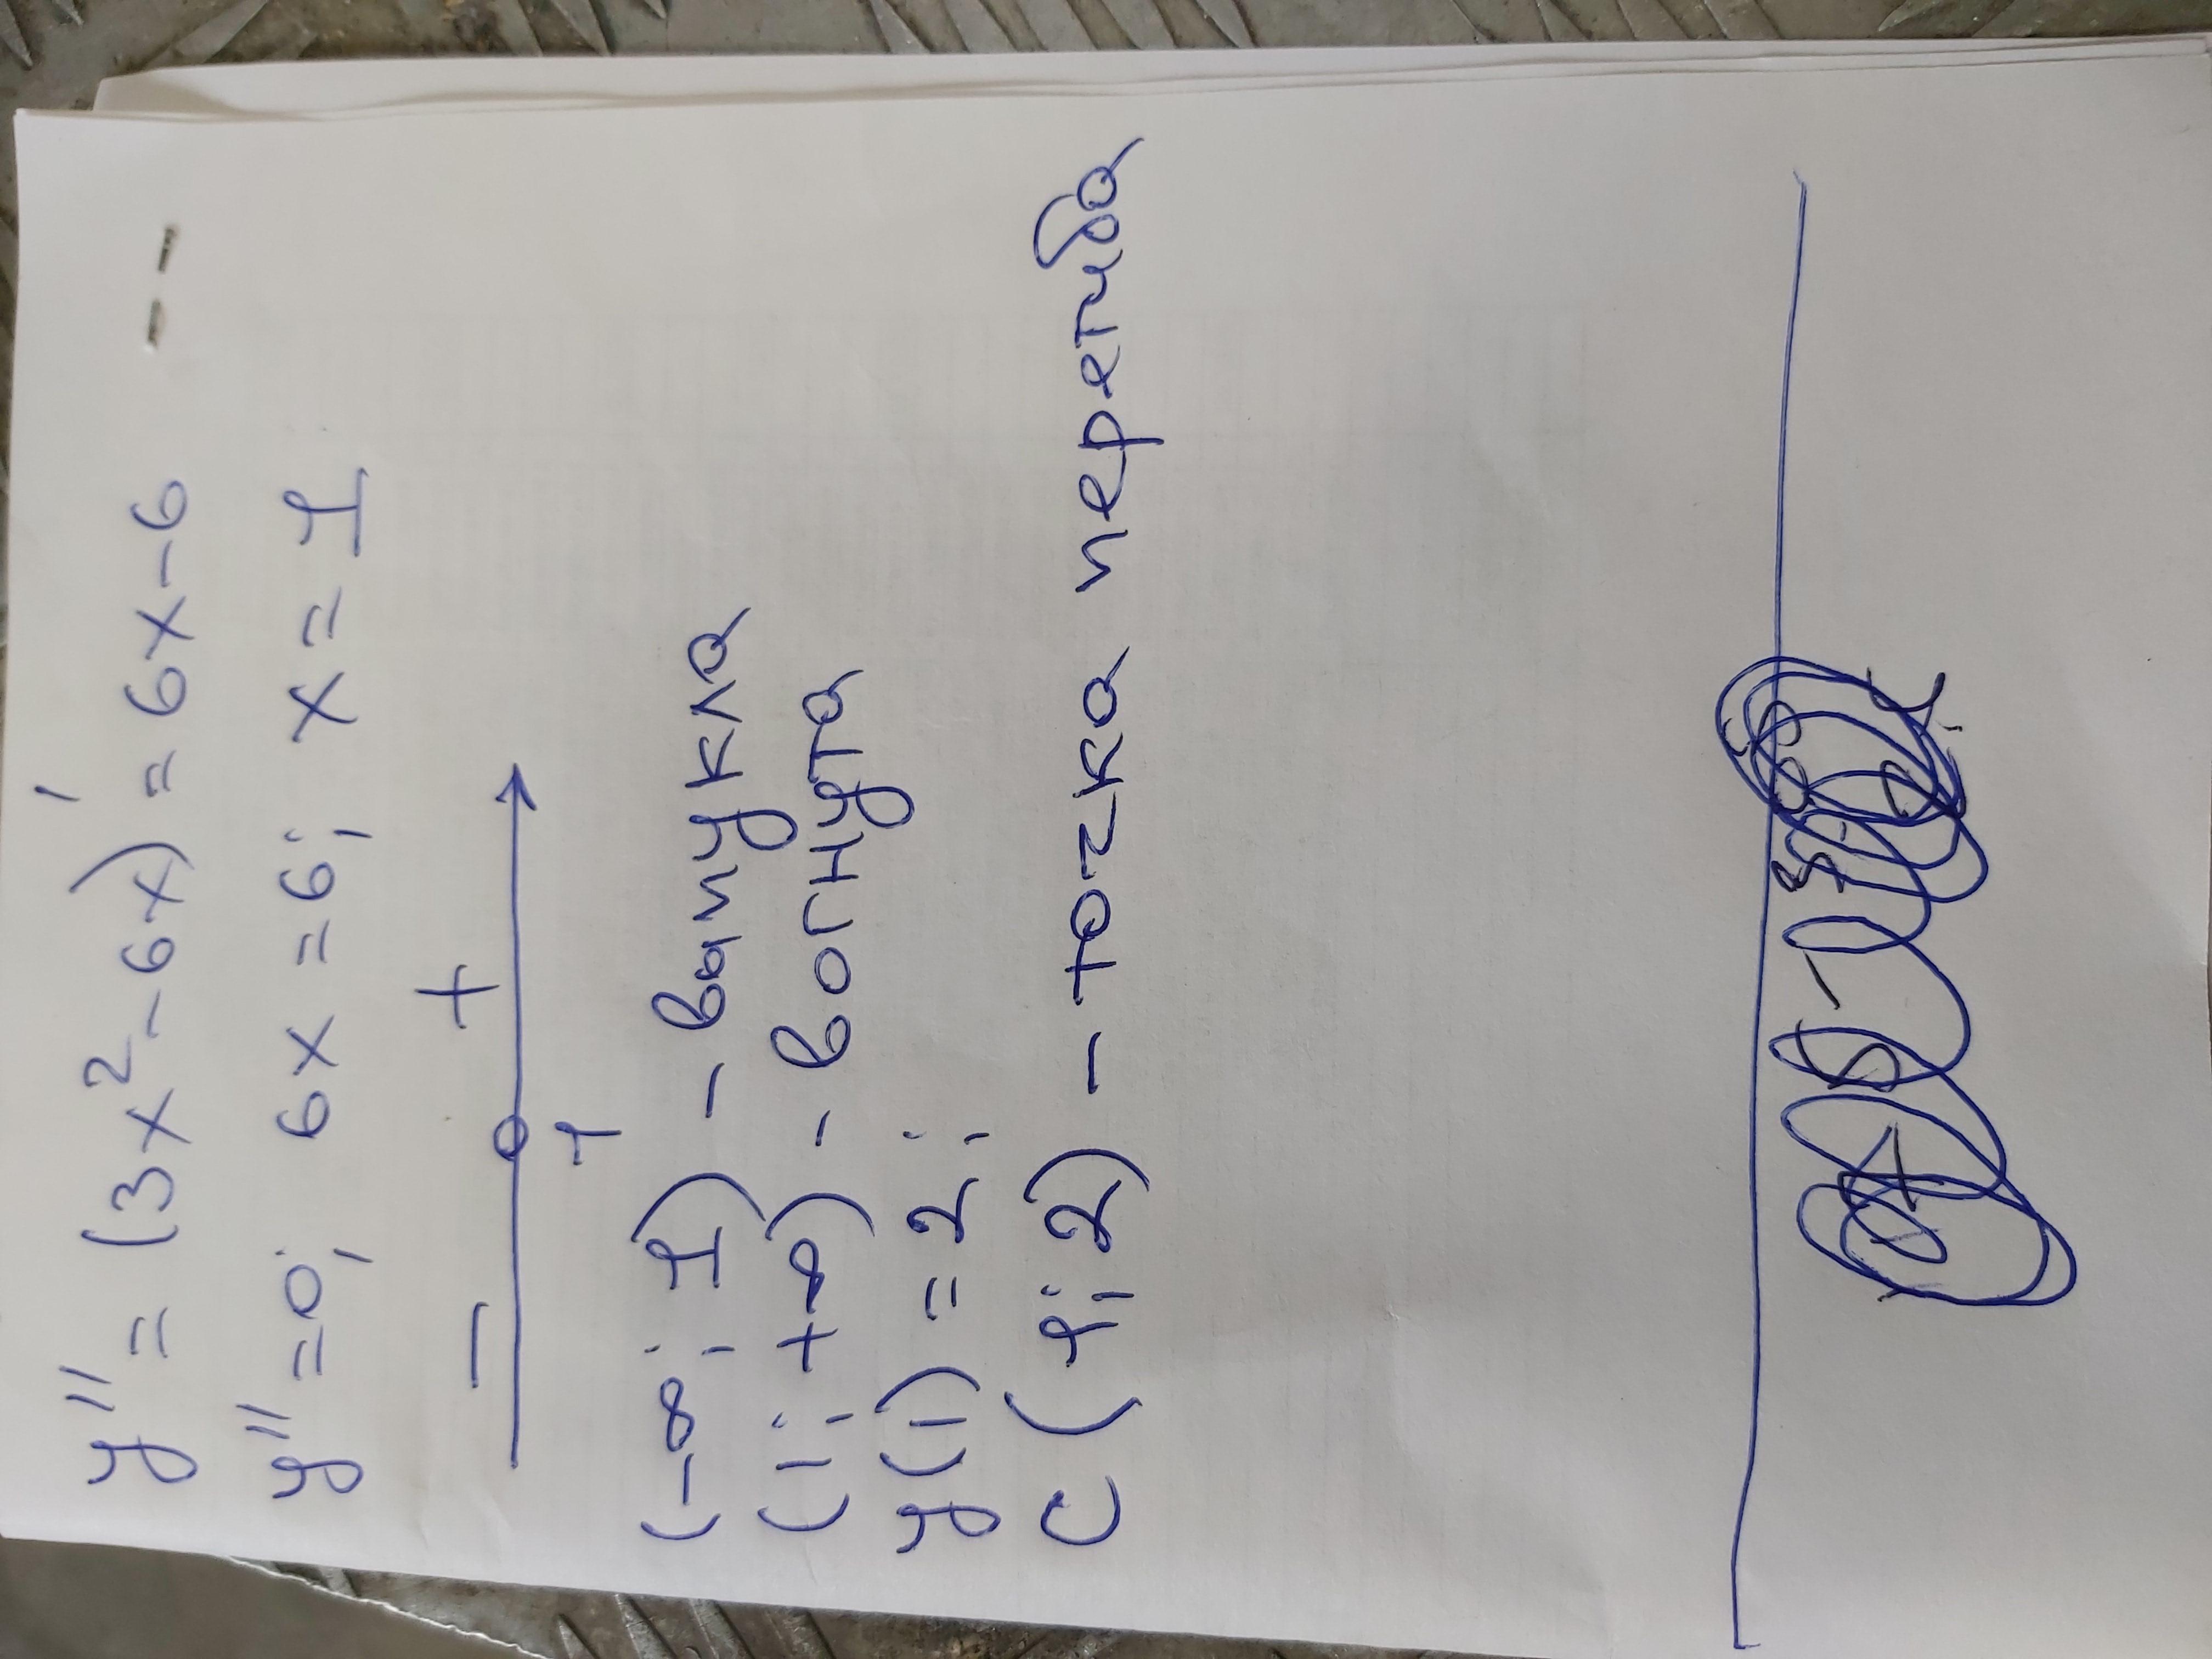 y'' = (3x² - 6x)' = 6x - 6
y'' = 0; 6x = 6; x = 1
- +
1
(-∞; 1) - выпукла
(1; +∞) - вогнута
y(1) = 2;
C (1; 2) - точка перегиба